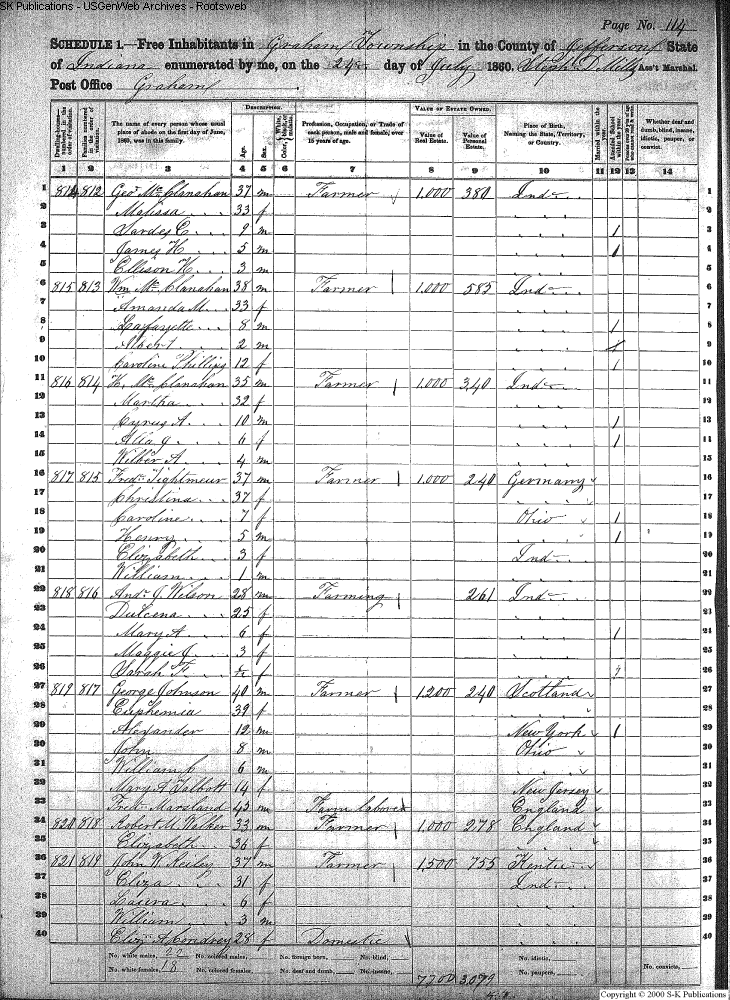 SK Publications - USGenWeb Archives - Rootsweb
Page No. 114
SCHEDULE 1.—Free Inhabitants in Graham Township in the County of Jefferson State
of Indiana enumerated by me, on the 24 day of July 1860. Steph. D. Mills Ass't Marshal.
Post Office Graham
DESCRIPTION.
VALUE OF ESTATE OWNED.
The name of every person whose usual place of abode on the first day of June, 1860, was in this family.
Age.
Sex.
Profession, Occupation, or Trade of each person, male and female, over 15 years of age.
Value of Real Estate.
Value of Personal Estate.
Place of Birth, Naming the State, Territory, or Country.
Whether deaf and dumb, blind, insane, idiotic, pauper, or convict.
1 2 3 4 5 6 7 8 9 10 11 12 13 14
1 814 812 Geo. Mc Clanahan 37 m Farmer 1,000 380 Ind 1
2 Malissa 33 f
3 Sardes C. 9 m 1 3
4 James H 5 m 1 4
5 Ellison H. 3 m 5
6 815 813 Wm Mc Clanahan 38 m Farmer 1,000 585 Ind 6
7 Amanda M. 33 f 7
8 Lafayette 8 m 1 8
9 Albert 2 m 9
10 Caroline Phillips 12 f 1 10
11 816 814 H. Mc Clanahan 35 m Farmer 1,000 340 Ind 11
12 Martha 32 f
13 Cyrus A. 10 m 1 13
14 J. 6 f 1
15 Wilber A. 4 m 15
16 817 815 Fredk 37 m Farmer 1,000 240 Germany 16
17 Christina 37 f 17
18 Caroline 7 f Ohio 1 18
19 Henry 5 m 1 19
20 Elizabeth 3 f Ind 20
21 William 1 m
22 818 816 Andr J. Wilson 28 m Farming 261 Ind
23 Dulcena 25 f
24 Mary A 6 f 1
25 Maggie J 3 f
26 Sarah F. f
27 819 817 George Johnson 40 m Farmer 1,200 240 Scotland
28 Euphemia 39 f
29 Alexander 12 m New York 1
30 John 8 m Ohio
31 William C 6 m
32 Mary A Talbott 14 f New Jersey
33 Fredk Marsland 45 m Farm laborer England
34 820 818 Robert M. Walker 33 m Farmer 1,000 278 England
35 Elizabeth 36 f
36 821 819 John W. 37 m Farmer 1,500 755 Kentu
37 Eliza 31 f Ind
38 Laura 6 f
39 William 3 m
40 Eliz. A 28 f Domestic 40
No. white males, 22 No. colored males, No. foreign born, No. blind, No. idiotic,
No. white females, 18 No. colored females, No. deaf and dumb, No. insane, No. paupers, No. convicts,
7700 3,079
Copyright © 2000 S-K Publications